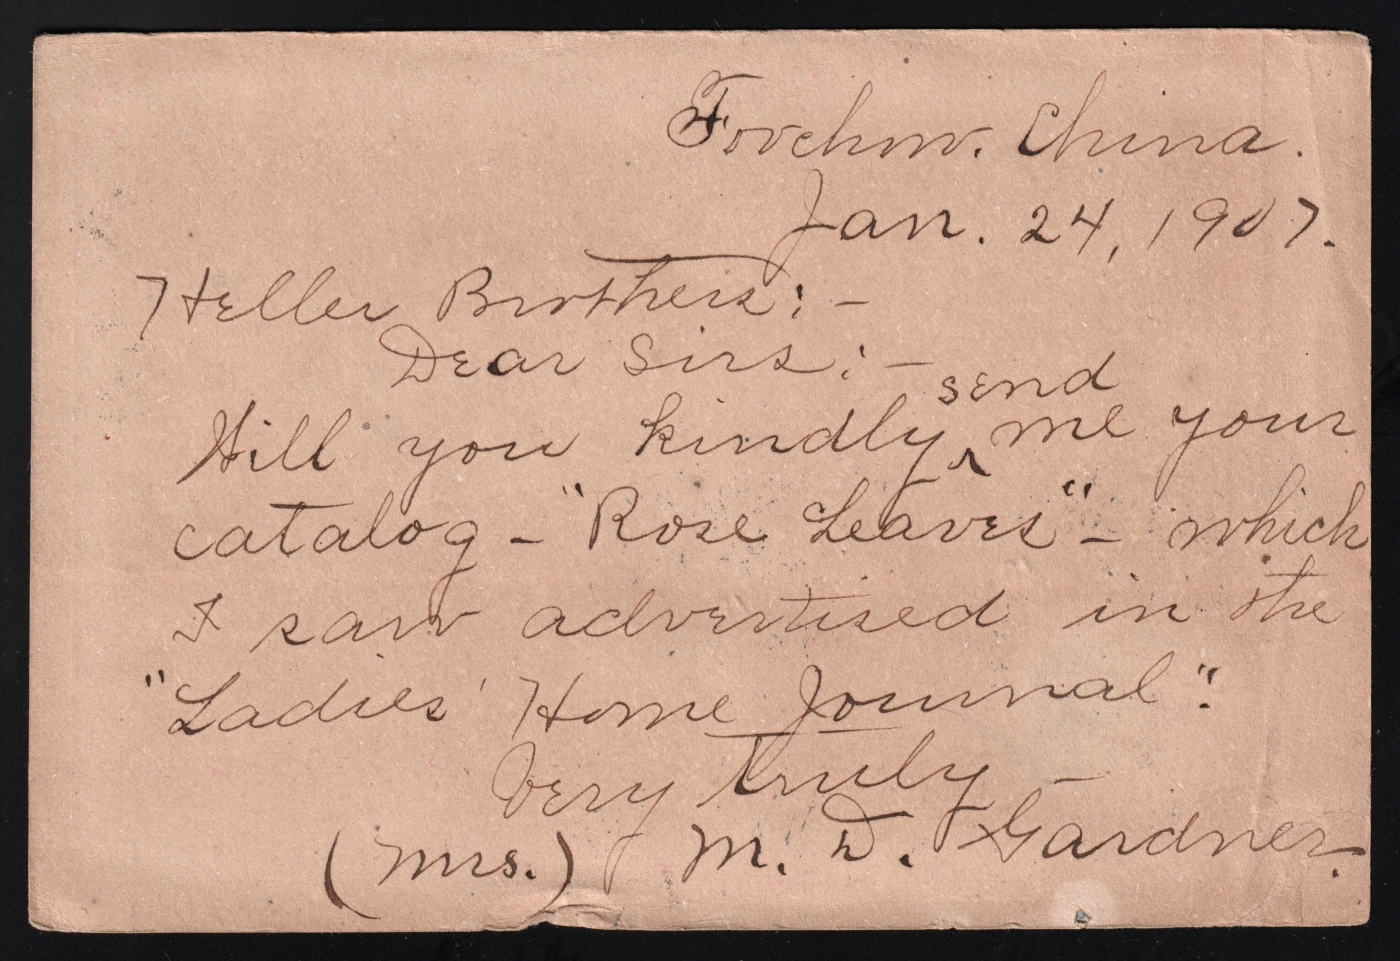 Foochow. China.
Jan. 24, 1907.
Heller Brothers: -
Dear Sirs: -
Will you kindly send me your
catalog - "Rose Leaves" - which
I saw advertised in the
"Ladies' Home Journal".
Very truly -
(Mrs.) M. D. Gardner.